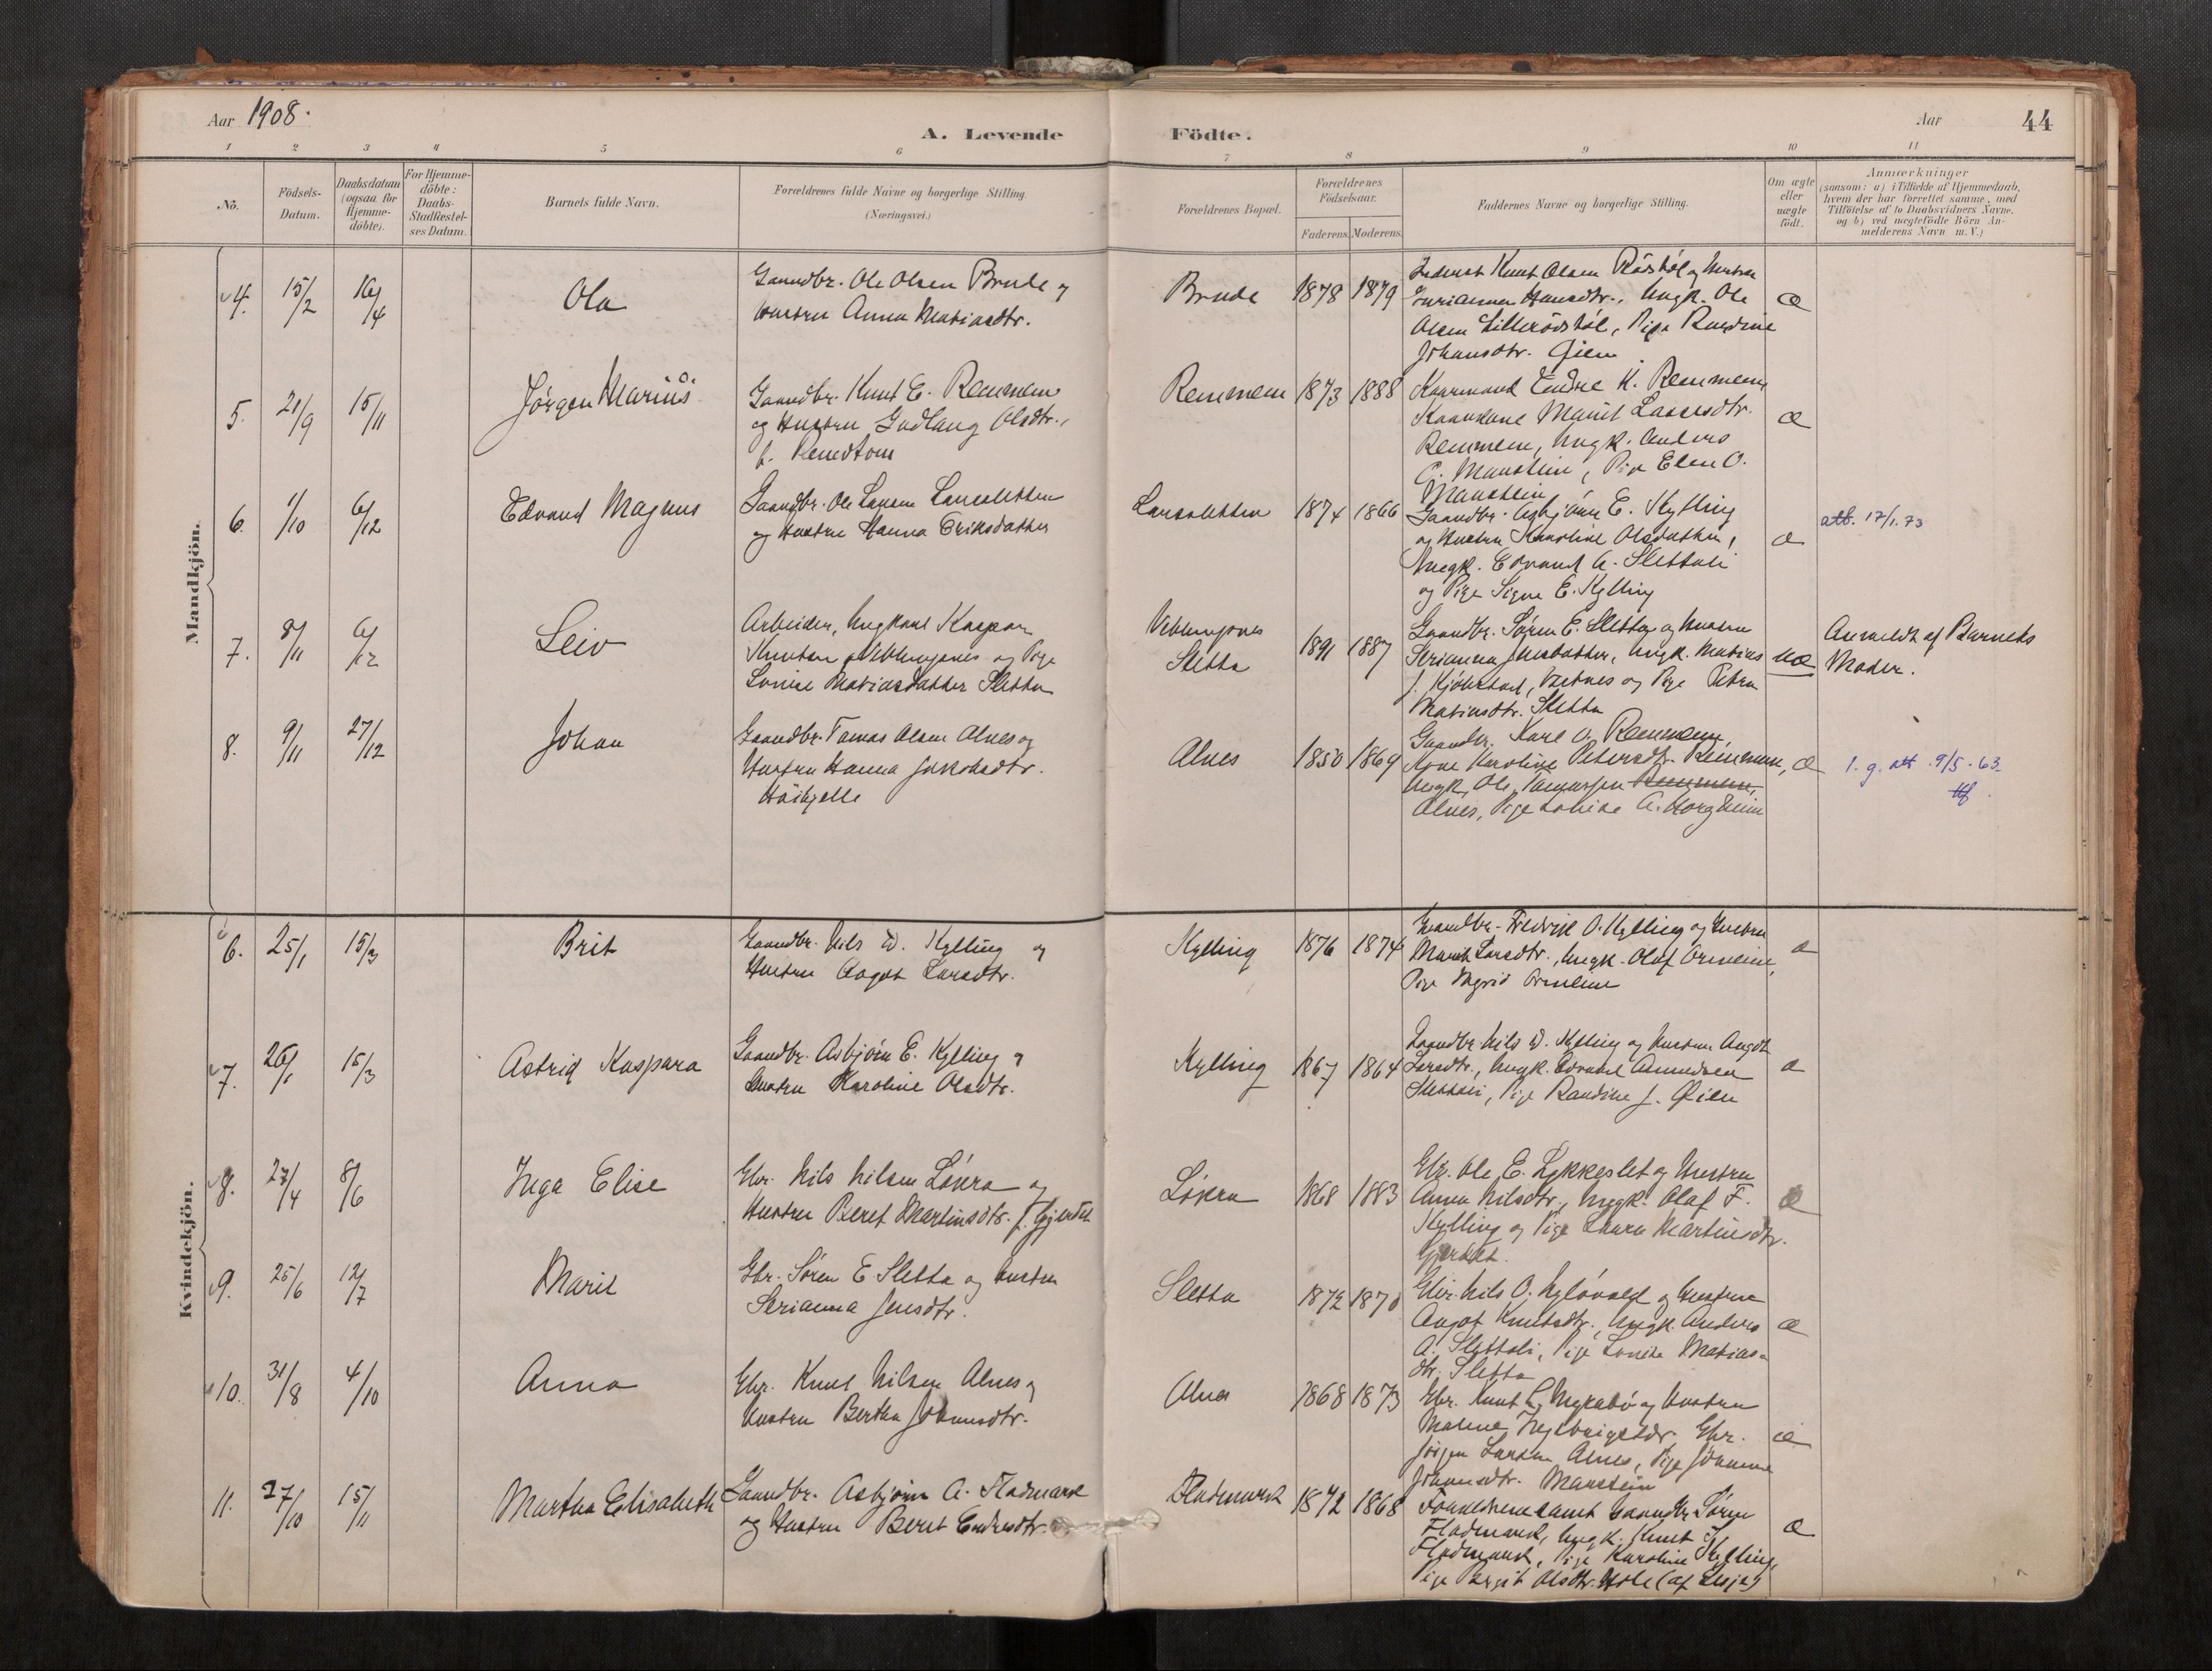 Aar 1908.
A. Levende Födte.
Aar 44
1 2 3 4 5 6 7 8 9 10 11
No.
Födsels-Datum.
Daabsdatum (ogsaa for Hjemme-döbte).
For Hjemme-döbte: Daabs-Stadfæstel-ses Datum.
Barnets fulde Navn.
Forældrenes fulde Navne og borgerlige Stilling. (Næringsvei.)
Forældrenes Bopæl.
Forældrenes Födselsaar.
Faderens. Moderens.
Faddernes Navne og borgerlige Stilling.
Om ægte eller uægte födt.
Anmærkninger
(saasom: a) i Tilfælde af Hjemmedaab,
hvem der har forrettet samme, med
Tilföielse af to Daabsvidners Navne,
og b) ved uægtefödte Börn An-
melderens Navn m. V.)
Mandkjön.
4. 15/2 16/4 Ola
Gaardbr. Ole Olsen Brude og
Hustru Anna Matiasdtr.
Brude 1878 1879
Knut Olsen Rødstøl og Hustru
Hansdtr., Ungk. Ole
Olsen Lillerødstøl, Pige Randine
Johansdtr. Øien
æ
5. 21/9 15/11 Jørgen Marius
Gaardbr. Knut E. Remmem
og Hustru Gudlaug Olsdtr.,
f.
Remmem 1873 1888
Kaarmand Endre K. Remmem,
Kaarkone Marit Lassesdtr.
Remmem, Ungk. Anders
O. Manstein, Pige Elen O.
Manstein
æ
6. 1/10 6/12 Edvard Magnus
Gaardbr. Ole Larsen
og Hustru Hanna Eriksdatter
1874 1866
Gaardbr. Asbjørn E. Kylling
og Hustru Karoline Olsdatter,
Ungk. Edvard A. Slettali
og Pige Signe E. Kylling
æ
att. 17/1.73
7. 8/11 6/12 Leiv
Arbeider, Ungkarl Kaspar
Knutsen Veblungsnes og Pige
Lovise Matiasdatter Sletta
Veblungsnes
Sletta
1891 1887
Gaardbr. Søren E. Sletta og Hustru
Serianna Jensdatter, Ungk. Matias
J. Kjølstad, og Pige Petra
Matiasdtr. Sletta
uæ
Anmeldt af Barnets
Moder.
8. 9/11 27/12 Johan
Gaardbr. Tomas Olsen Alnes og
Hustru Hanna Jakobsdtr.
Høihjelle
Alnes 1850 1869
Gaardbr. Karl O. Remmem,
Kone Karoline Petersdtr. Remmem,
Ungk. Ole Tomassen Remmem,
Alnes, Pige Lovise A. Horgheim
æ
1. g. att. 9/5.63
Kvindekjön.
6. 25/1 15/3 Brit
Gaardbr. Nils W. Kylling og
Hustru Angot Larsdtr.
Kylling 1876 1874
Gaardbr. Fredrik O. Kylling og Hustru
Marit Larsdtr., Ungk. Olaf Ormeim,
Pige Ingrid Ormeim
æ
7. 26/1 15/3 Astrid Kaspara
Gaardbr. Asbjørn E. Kylling og
Hustru Karoline Olsdtr.
Kylling 1867 1864
Gaardbr. Nils W. Kylling og Hustru Angot
Larsdtr., Ungk. Edvard Amundsen
Slettali, Pige Randine J. Øien
æ
8. 27/4 8/6 Inga Elise
Gbr. Nils Nilsen Løkra og
Hustru Beret Martinsdtr. f. Gjerdet
Løkra 1868 1883
Gbr. Ole E. Lykkeslet og Hustru
Anna Nilsdtr., Ungk. Olaf F.
Kylling og Pige Laura Martinsdtr.
Gjerdet.
æ
9. 25/6 12/7 Marit
Gbr. Søren E. Sletta og Hustru
Serianna Jensdtr.
Sletta 1872 1870
Gbr. Nils O. og Hustru
Angot Knutsdtr., Ungk. Anders
A. Slettali, Pige Lovise Matias-
dtr. Sletta
æ
10. 31/8 4/10 Anna
Gbr. Knut Nilsen Alnes og
Hustru Bertha Johansdtr.
Alnes 1868 1873
Gbr. Knut L. Myrabø og Hustru
Malene Gbr.
Jørgen Larsen Alnes, Pige Johanna
Johansdtr. Manstein
æ
11. 27/10 15/11 Martha Elisabeth
Gaardbr. Asbjørn A. Fladmark
og Hustru Beret Endresdtr.
Fladmark 1872 1868
Forældrene samt Gaardbr. Søren
Fladmark, Ungk. Knut J.
Fladmark, Pige Karoline Kylling,
Pige Birgit Olsdtr. Hole (af Lesja)
æ